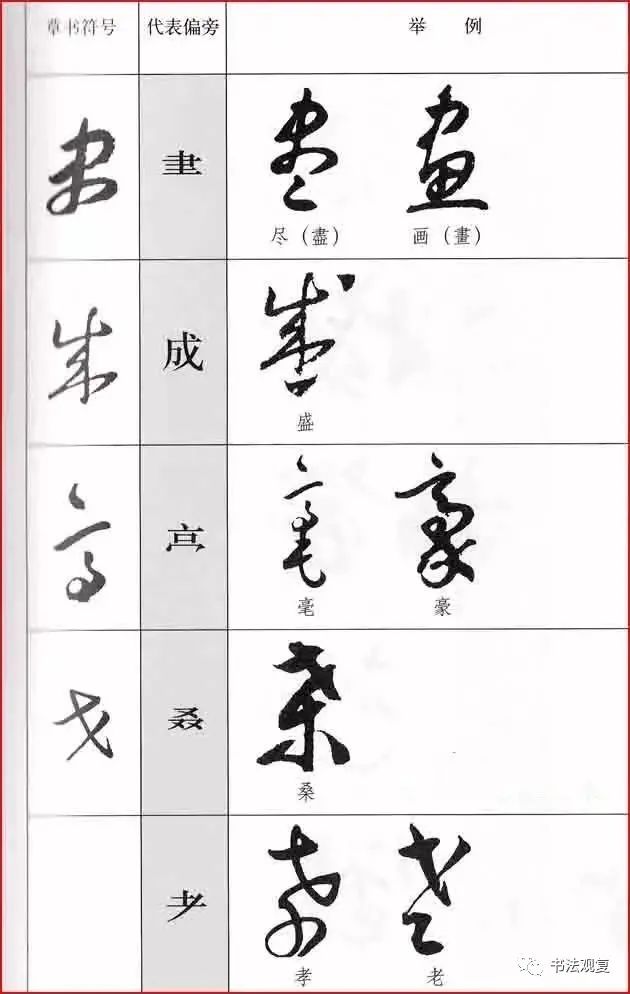 草书符号 代表偏旁 举例
𦘒
尽（盡） 画（畫）
成
盛
亠口冖
毫 豪
叒
桑
耂
孝 老
书法观复